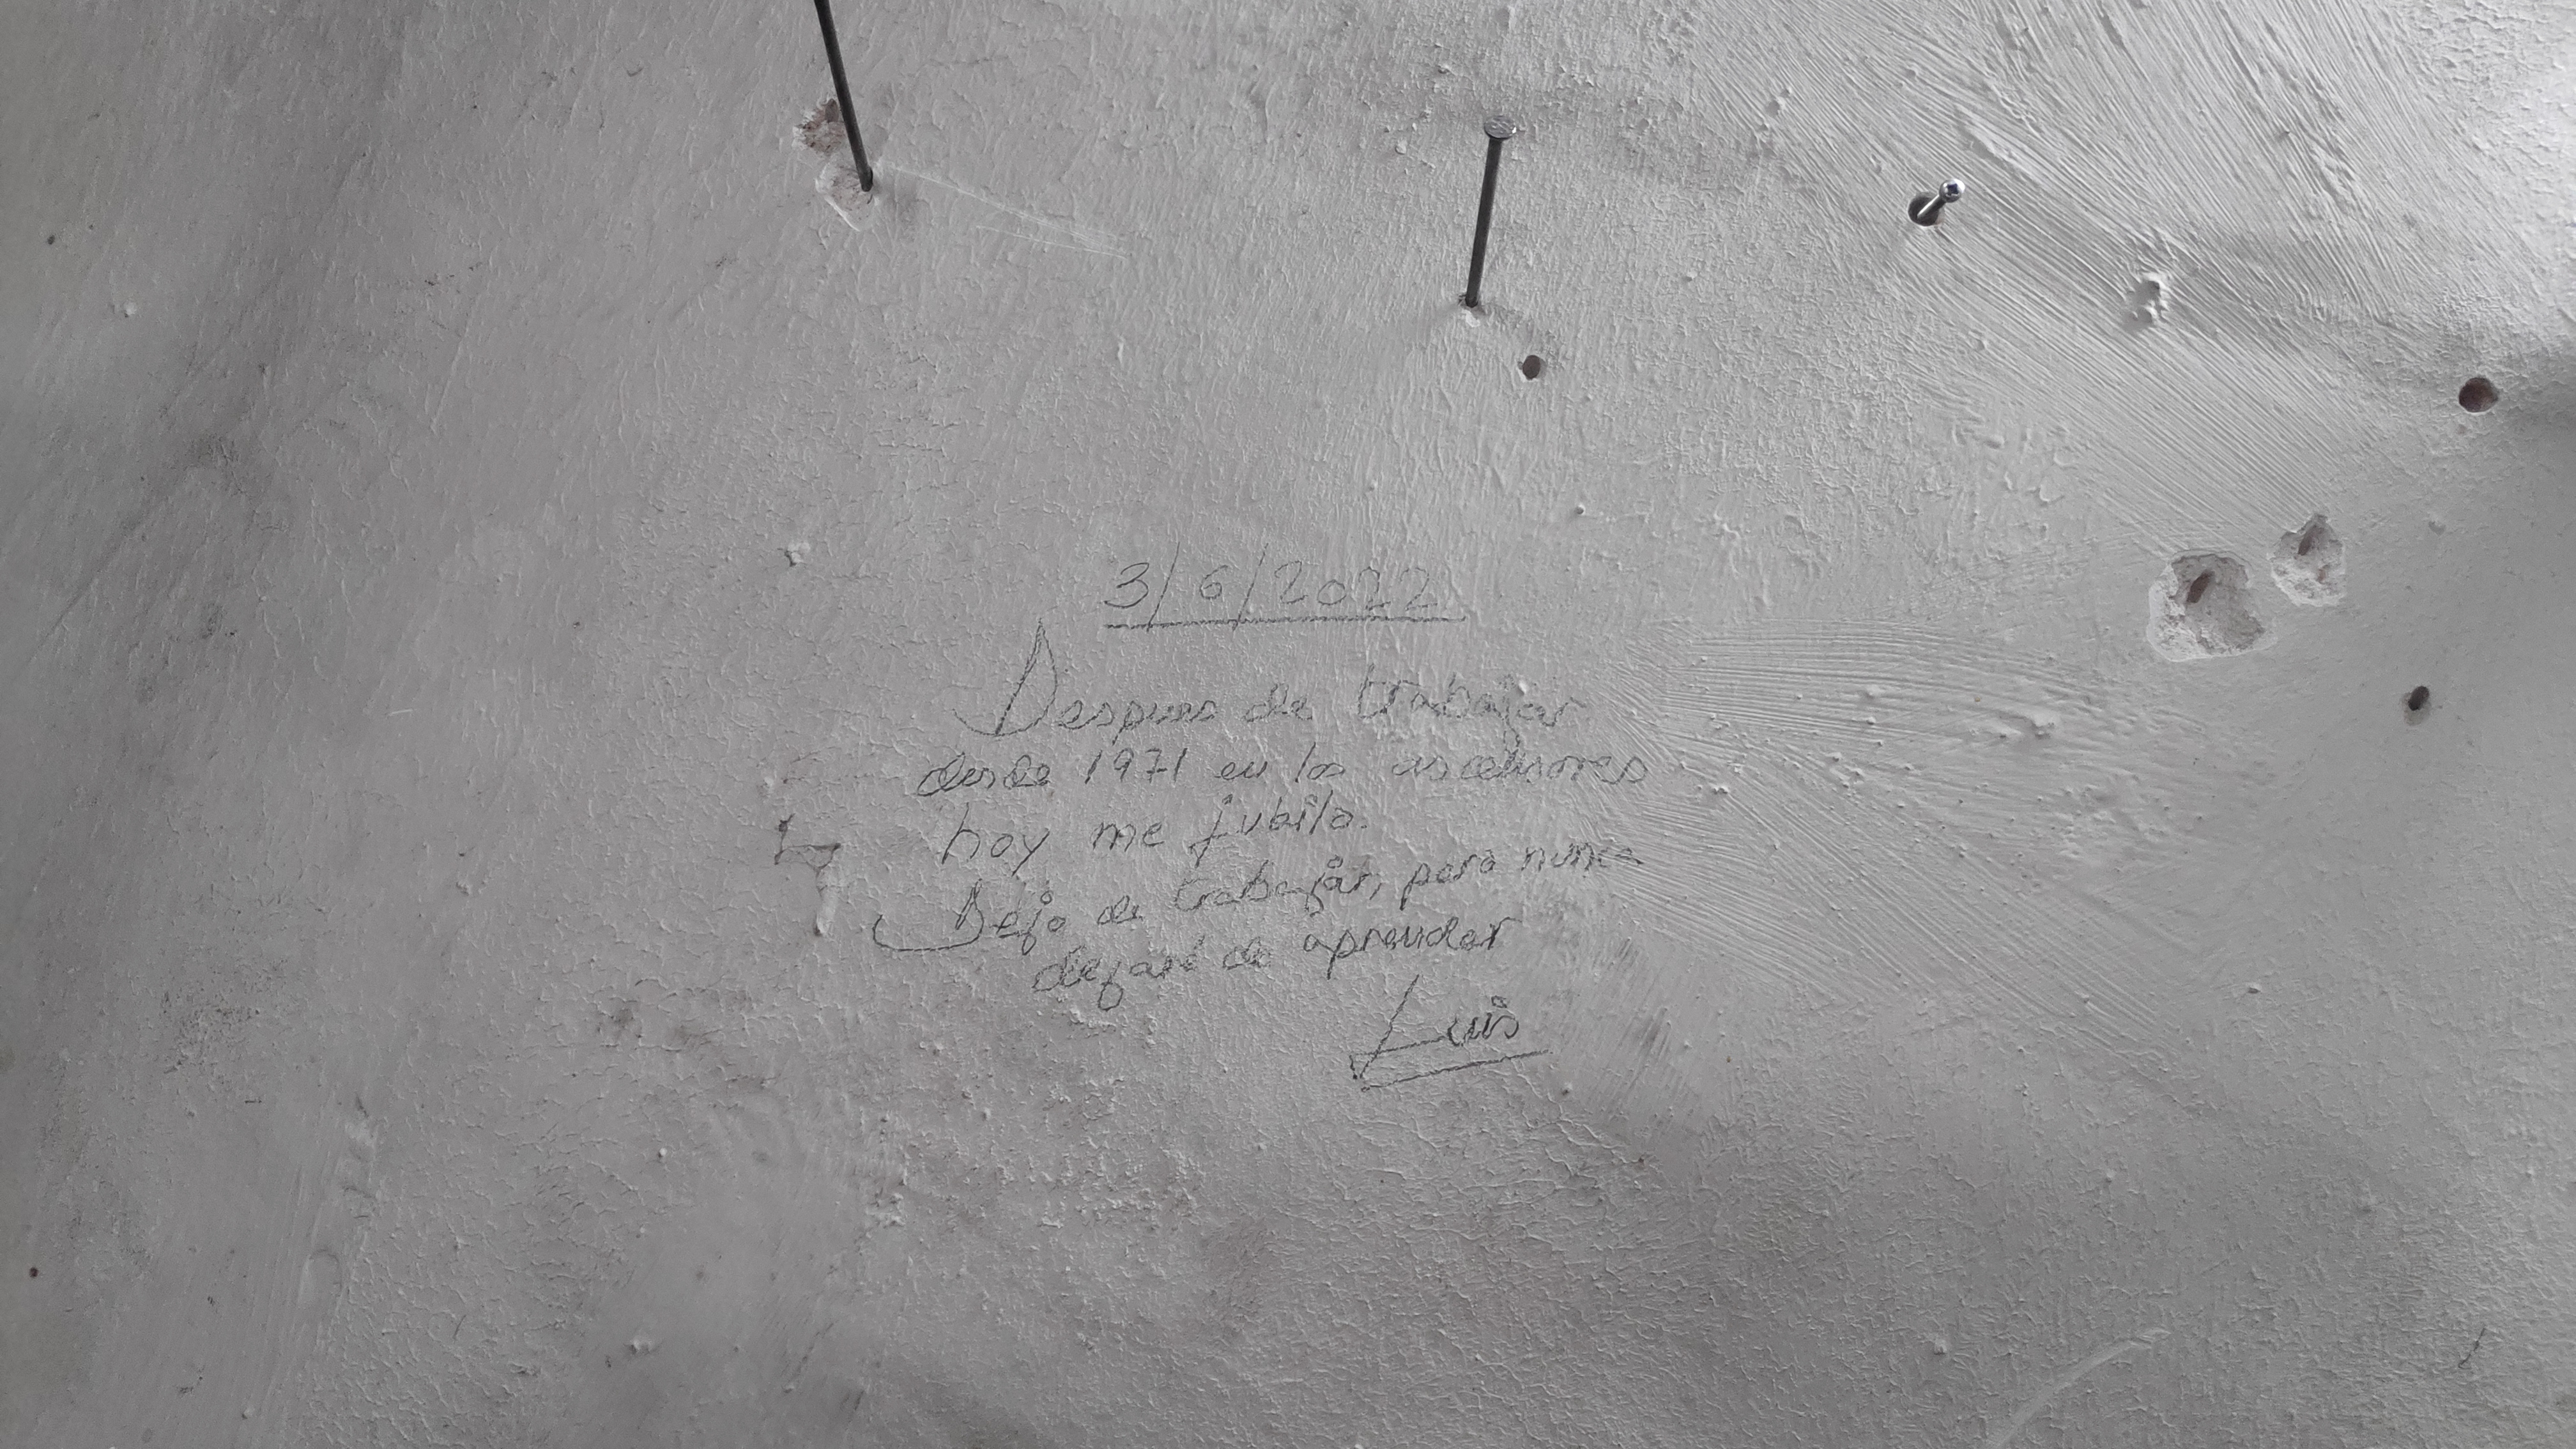 3/6/2022
Despues de trabajar
desde 1971 en los ascensores
hoy me jubilo.
Dejo de trabajar, pero nunca
dejaré de aprender
Luis